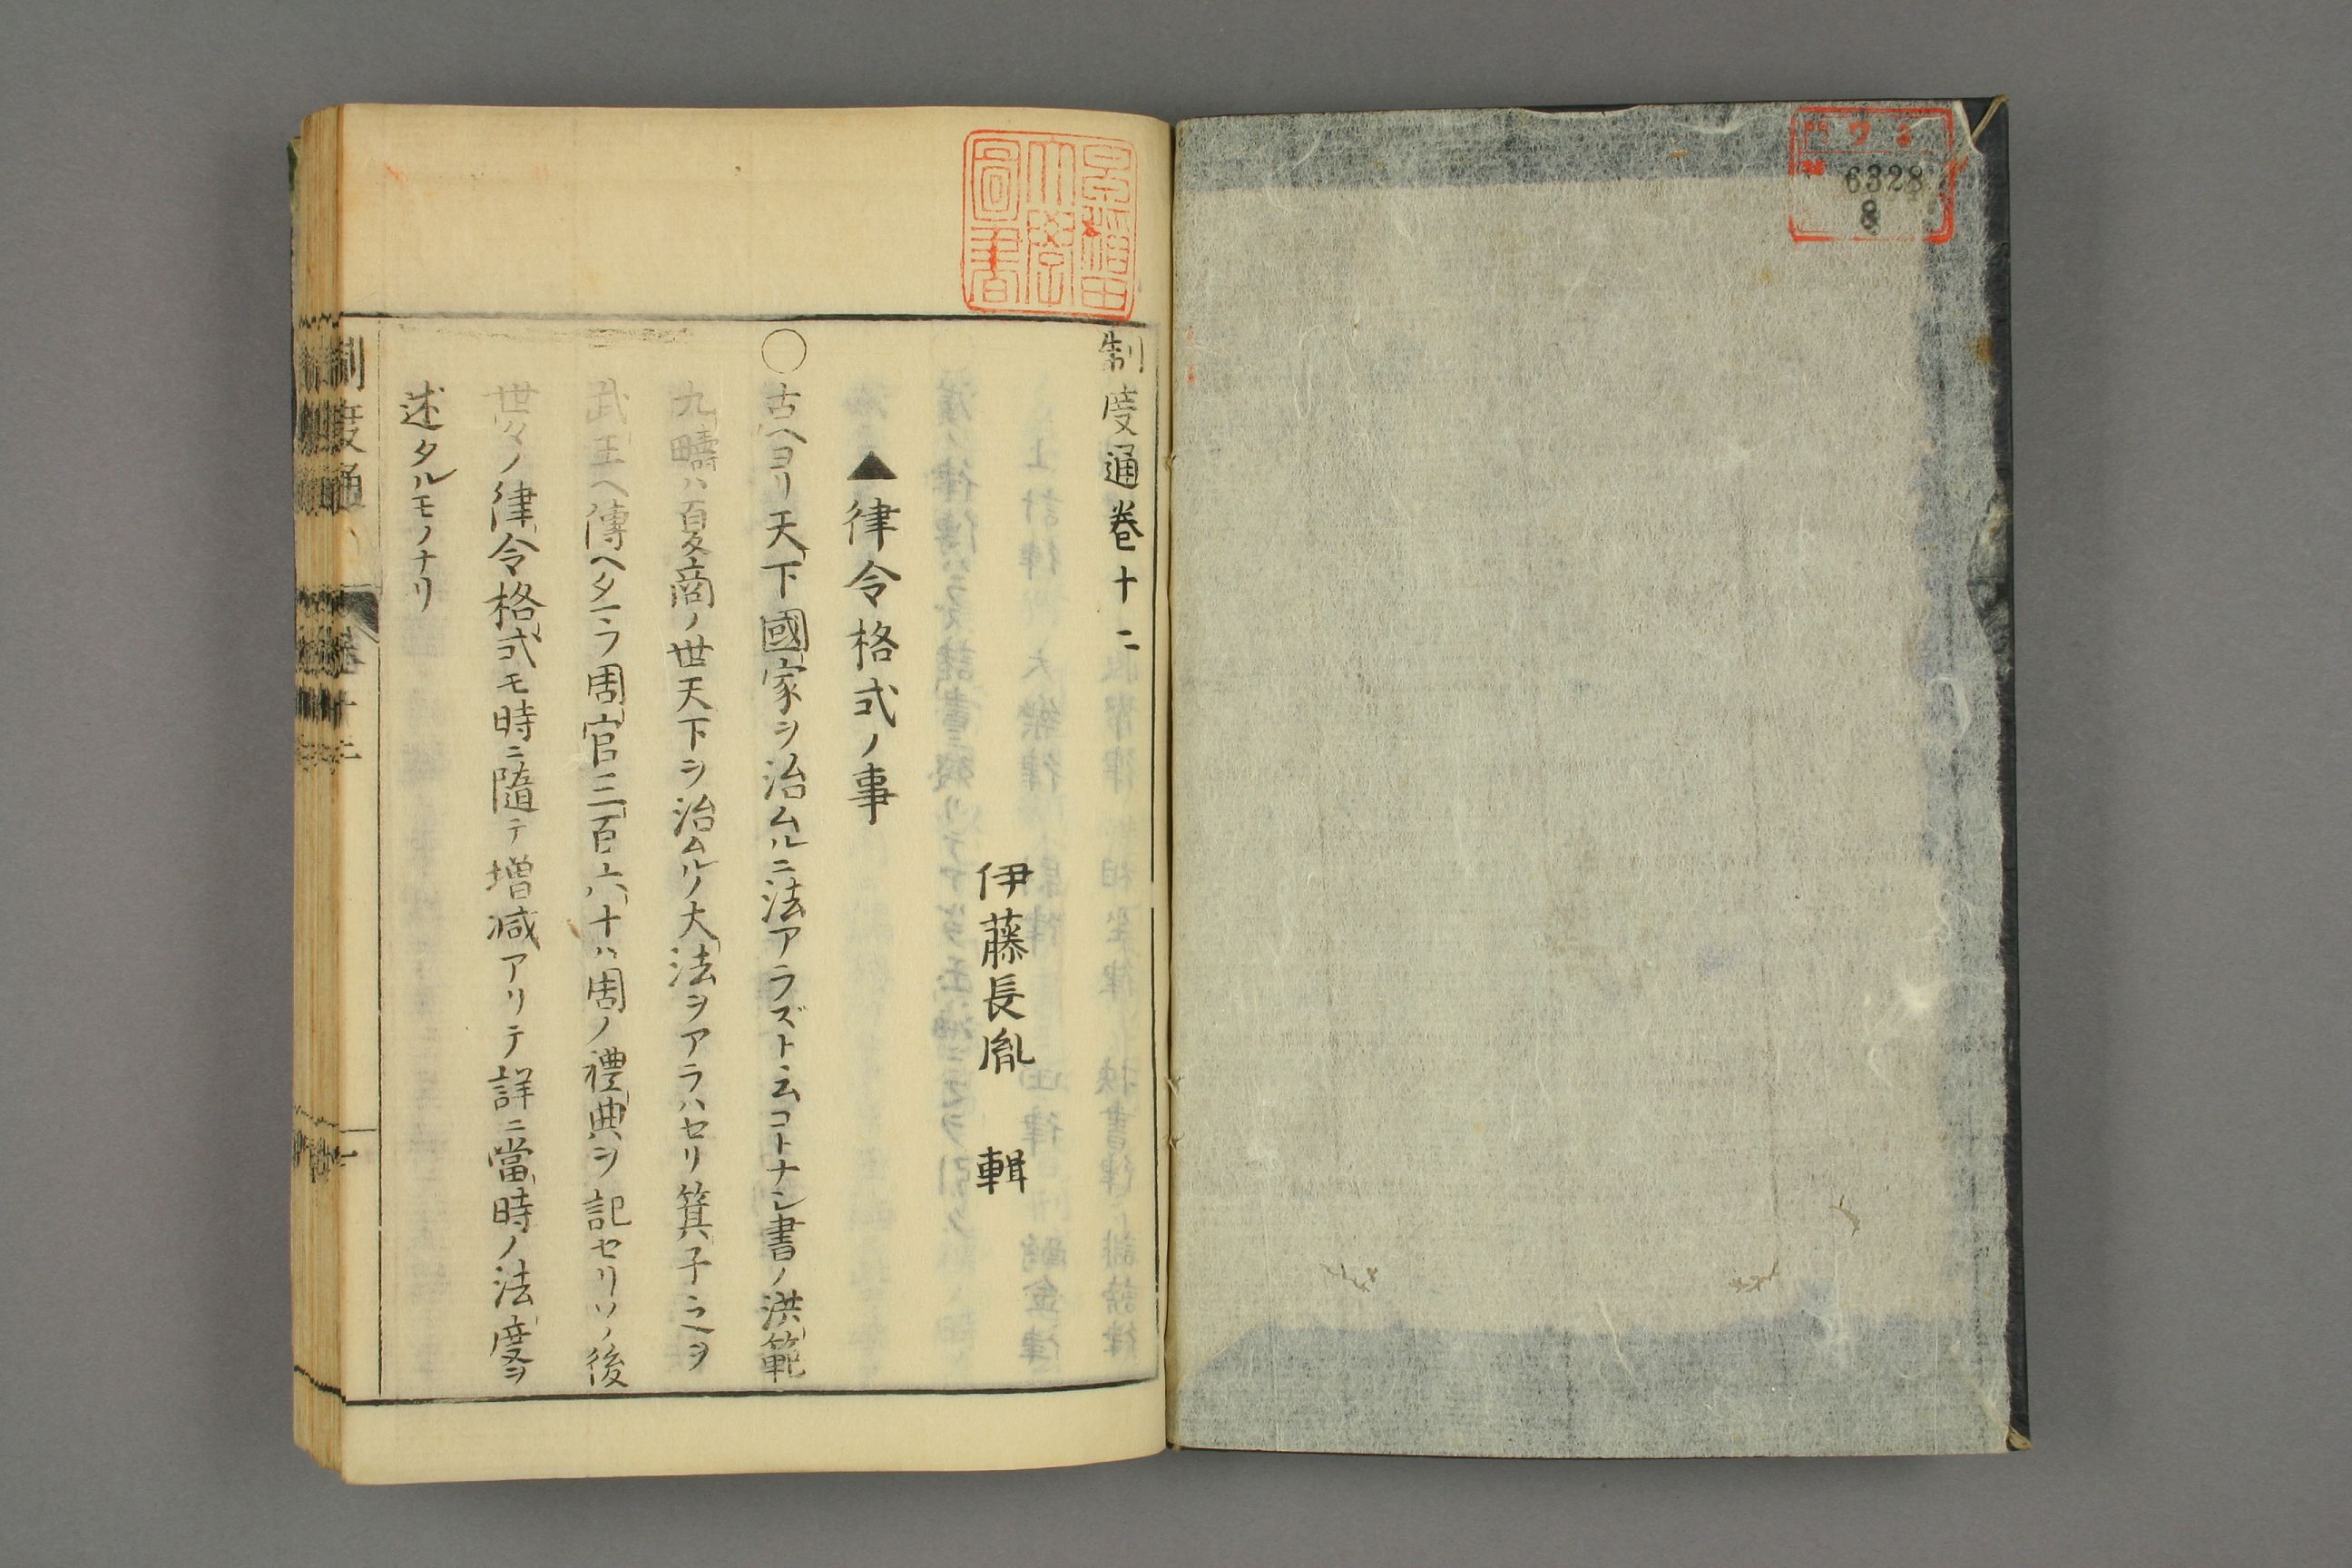 ワ 3
6328
8
早稲田大學圖書
制度通巻十二
伊藤長胤 輯
▲律令格式ノ事
○古ヘヨリ天下國家ヲ治ムルニ法アラズト云コトナシ書ノ洪範
九疇ハ夏商ノ世天下ヲ治ムルノ大法ヲアラハセリ箕子コレヲ
武王ヘ傳ヘタマフ周官三百六十ハ周ノ禮典ヲ記セリソノ後
世々ノ律令格式モ時ニ隨テ増減アリテ詳ニ當時ノ法度ヲ
述タルモノナリ
制度通 卷十二